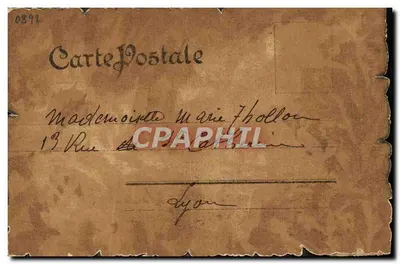 0898
Carte Postale
Mademoiselle Marie Thollon
13 Rue de
CPAPHIL
Lyon